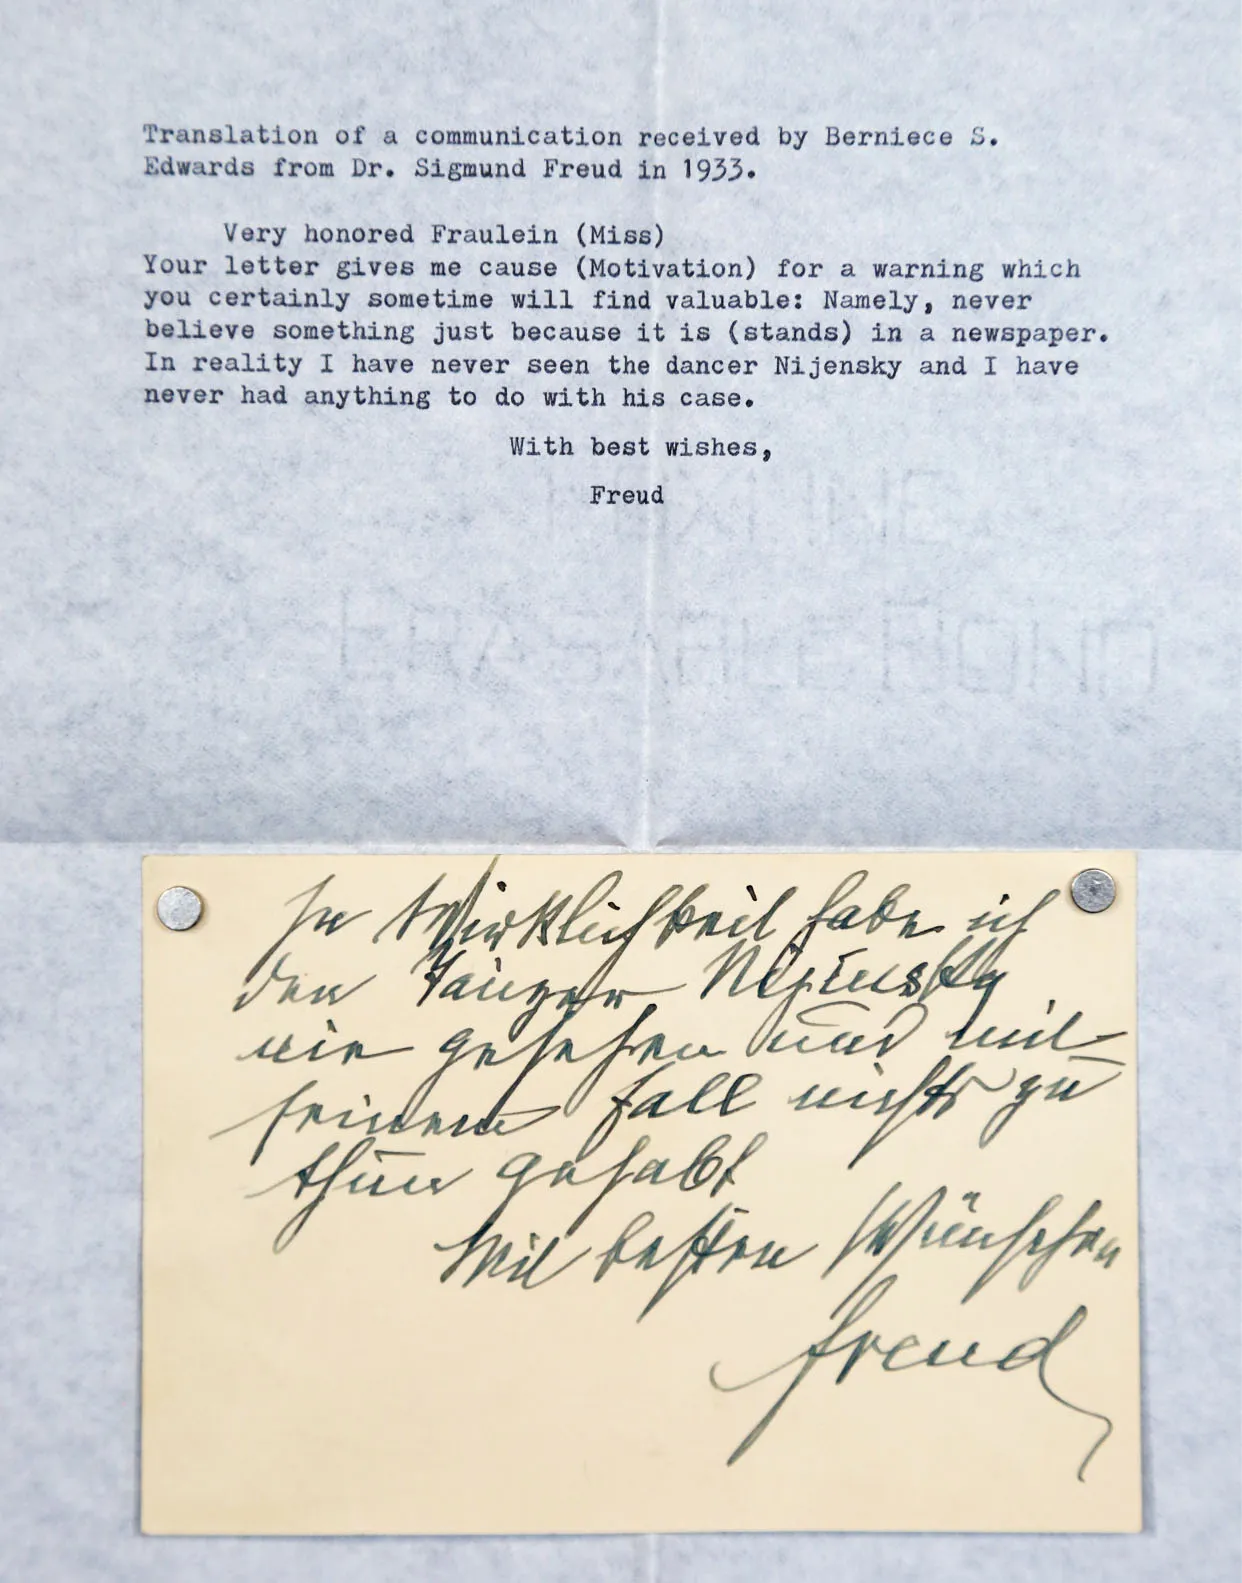 Translation of a communication received by Berniece S.
Edwards from Dr. Sigmund Freud in 1933.
Very honored Fraulein (Miss)
Your letter gives me cause (Motivation) for a warning which
you certainly sometime will find valuable: Namely, never
believe something just because it is (stands) in a newspaper.
In reality I have never seen the dancer Nijensky and I have
never had anything to do with his case.
With best wishes,
Freud
ERASABLE BOND
In Wirklichkeit habe ich
den Tänzer Nijinsky
nie gesehen und mit
seinem Fall nichts zu
thun gehabt
Mit besten Wünschen
Freud